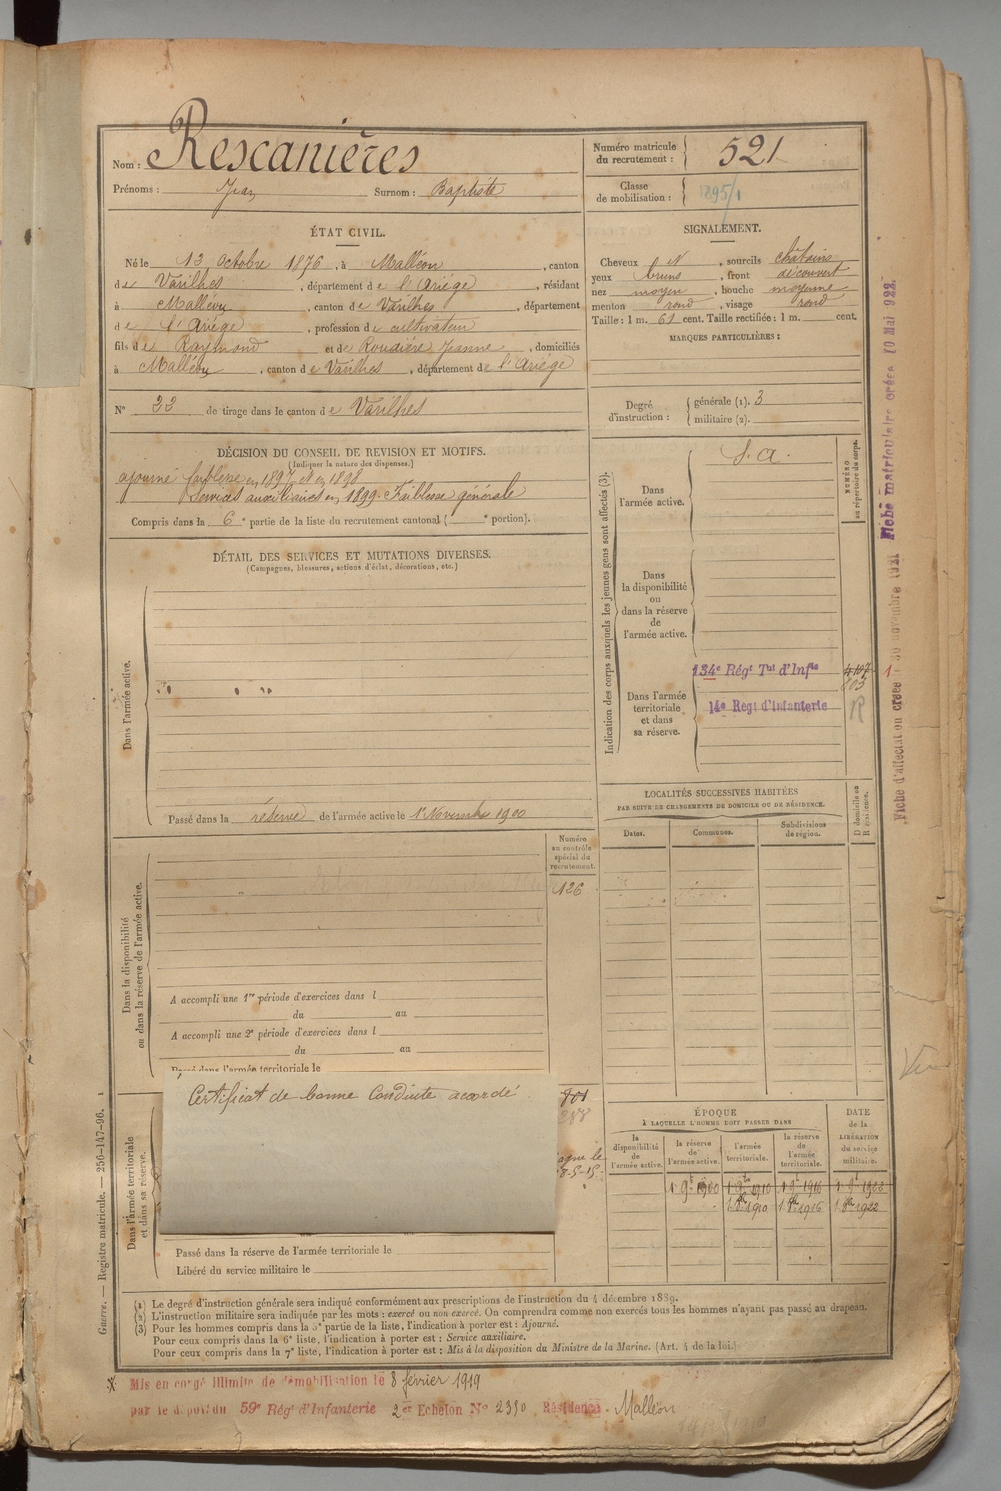 Nom : Rescanières
Prénoms : Jean Surnom : Baptiste
Numéro matricule du recrutement : 521
Classe de mobilisation : 1895/1
ÉTAT CIVIL.
Né le 13 Octobre 1876, à Malléon, canton
de Varilhes, département de l'Ariége, résidant
à Malléon, canton de Varilhes, département
de l'Ariége, profession de cultivateur
fils de Raymond et de Roudière Jeanne, domiciliés
à Malléon, canton de Varilhes, département de l'Ariége
N° 33 de tirage dans le canton de Varilhes
SIGNALEMENT.
Cheveux N, sourcils châtains
yeux bruns, front découvert
nez moyen, bouche moyenne
menton rond, visage rond
Taille : 1 m. 61 cent. Taille rectifiée : 1 m. cent.
MARQUES PARTICULIÈRES :
Degré d'instruction : générale (1). 3
militaire (2).
DÉCISION DU CONSEIL DE REVISION ET MOTIFS.
(Indiquer la nature des dispenses.)
ajourné faiblesse en 1897 et en 1898
Services auxiliaires en 1899. Faiblesse générale
Compris dans la 6e partie de la liste du recrutement cantonal ( e portion).
DÉTAIL DES SERVICES ET MUTATIONS DIVERSES.
(Campagnes, blessures, actions d'éclat, décorations, etc.)
Dans l'armée active.
Passé dans la réserve de l'armée active le 1er Novembre 1900
Indication des corps auxquels les jeunes gens sont affectés (3).
NUMÉRO au répertoire du corps.
Dans l'armée active.
S. A.
Dans la disponibilité ou dans la réserve de l'armée active.
Dans l'armée territoriale et dans sa réserve.
134e Régt Tal d'Infie
14e Regt d'Infanterie
R
LOCALITÉS SUCCESSIVES HABITÉES
PAR SUITE DE CHANGEMENTS DE DOMICILE OU DE RÉSIDENCE.
Dates. Communes. Subdivisions de région. D domicile ou R résidence.
Numéro au contrôle spécial du recrutement.
126
Dans la disponibilité ou dans la réserve de l'armée active.
A accompli une 1re période d'exercices dans l
du au
A accompli une 2e période d'exercices dans l
du au
Passé dans l'armée territoriale le
Certificat de bonne Conduite accordé
801
288
agne le
8-5-15
Dans l'armée territoriale et dans sa réserve.
Passé dans la réserve de l'armée territoriale le
Libéré du service militaire le
ÉPOQUE
À LAQUELLE L'HOMME DOIT PASSER DANS
la disponibilité de l'armée active.
la réserve de l'armée active.
l'armée territoriale.
la réserve de l'armée territoriale.
DATE de la LIBÉRATION du service militaire.
1 9bre 1900 1 9bre 1910 1 9bre 1916 1 9bre 1922
1 8bre 1910 1 8bre 1916 1 8bre 1922
(1) Le degré d'instruction générale sera indiqué conformément aux prescriptions de l'instruction du 4 décembre 1889.
(2) L'instruction militaire sera indiquée par les mots : exercé ou non exercé. On comprendra comme non exercés tous les hommes n'ayant pas passé au drapeau.
(3) Pour les hommes compris dans la 5e partie de la liste, l'indication à porter est : Ajourné.
Pour ceux compris dans la 6e liste, l'indication à porter est : Service auxiliaire.
Pour ceux compris dans la 7e liste, l'indication à porter est : Mis à la disposition du Ministre de la Marine. (Art. 4 de la loi.)
Mis en congé illimité de démobilisation le 8 février 1919
par le dépôt du 59e Régt d'Infanterie 2er Echelon No 2350 Résidence Malléon
Guerre. — Registre matricule. — 256-147-96.
Fiche d'affectation créée 30 novembre 1921 Fiche matriculaire créée 10 Mai 922